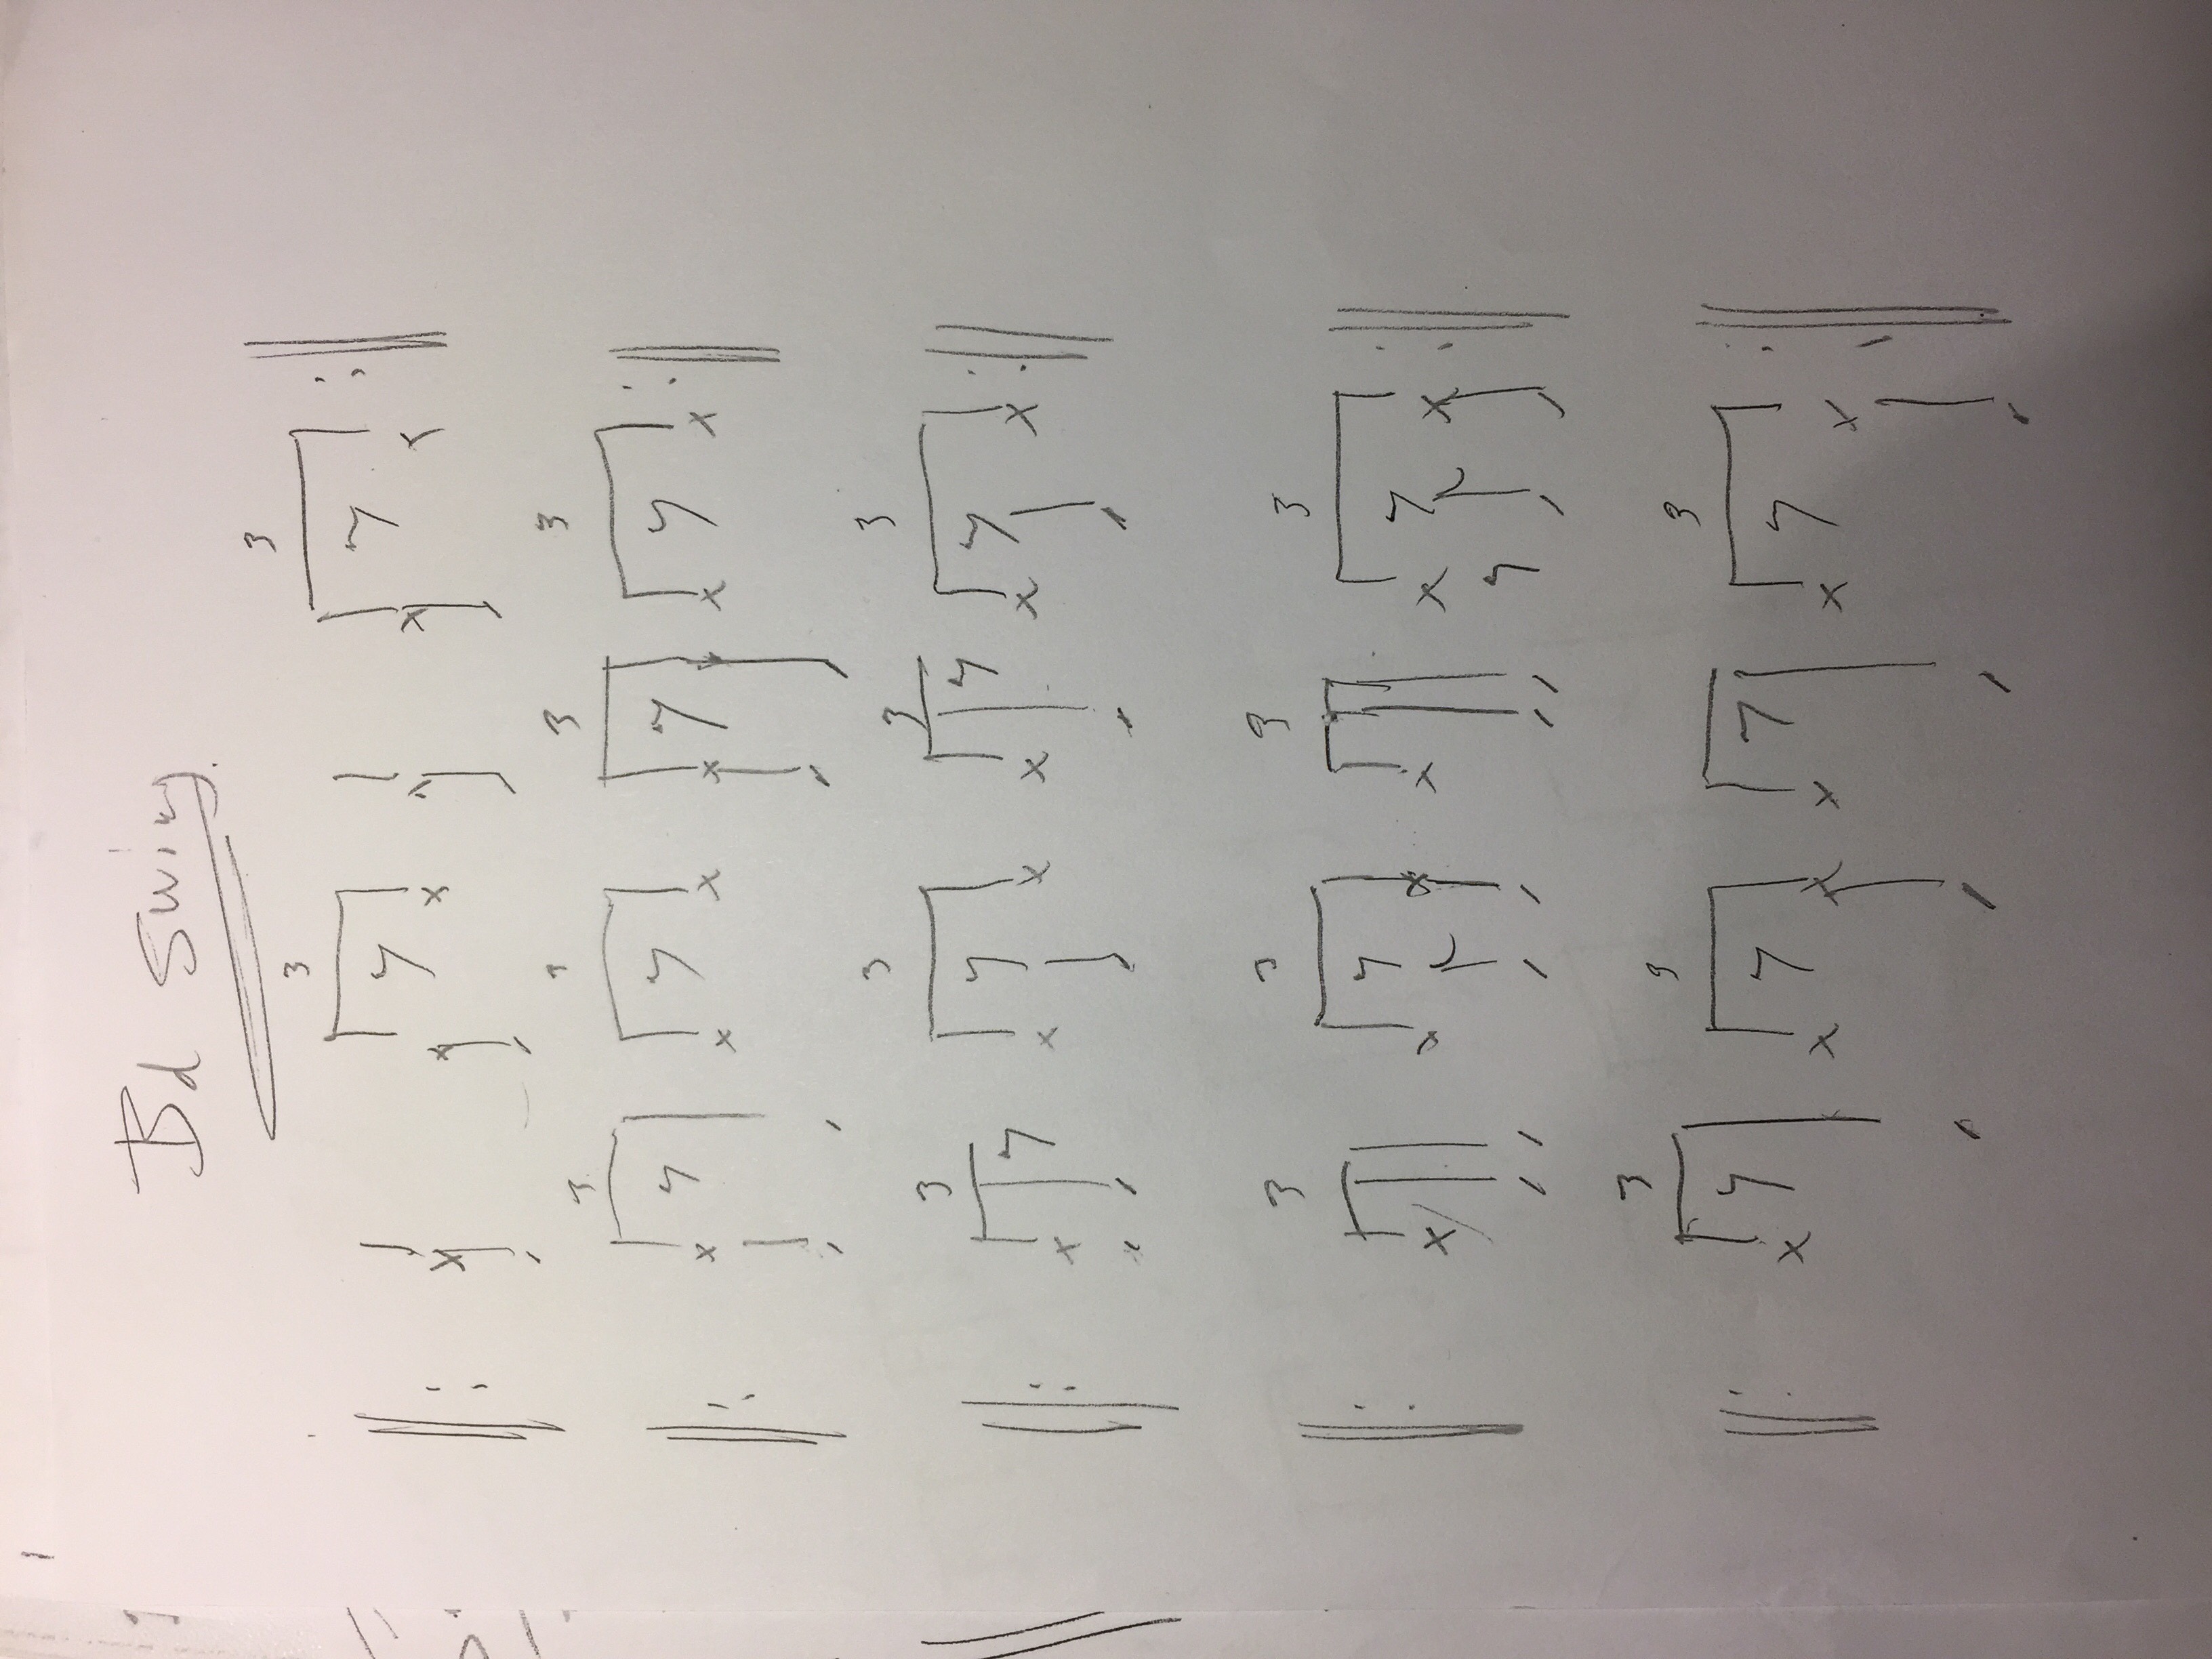 Bd Swing
3 3
3 3 3 3
3 3 3 3
3 3 3 3
3 3 3